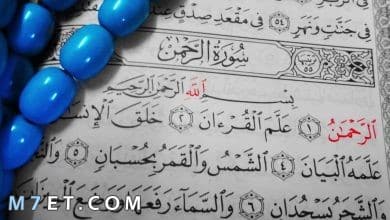 فِى جَنَّٰتٍ وَنَهَرٍ ٥٤ فِى مَقْعَدِ صِدْقٍ عِندَ
سُورَةُ الرَّحْمَٰن
بِسْمِ ٱللَّهِ ٱلرَّحْمَٰنِ ٱلرَّحِيمِ
ٱلرَّحْمَٰنُ ١ عَلَّمَ ٱلْقُرْءَانَ ٢ خَلَقَ ٱلْإِنسَٰ
عَلَّمَهُ ٱلْبَيَانَ ٤ ٱلشَّمْسُ وَٱلْقَمَرُ بِحُسْبَانٍ ٥ وَٱلنَّجْ
ٱلشَّجَرُ يَسْجُدَانِ ٦ وَٱلسَّمَآءَ رَفَعَهَا
M7ET.COM